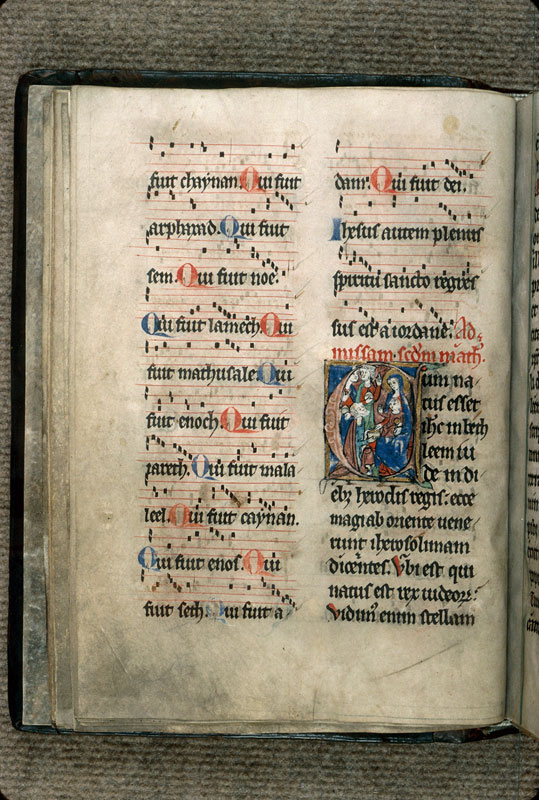 fuit chaynan. Qui fuit
arphaxad. Qui fuit
sem. Qui fuit noe.
Qui fuit lamech. Qui
fuit mathusale. Qui
fuit enoch. Qui fuit
iareth. Qui fuit mala
leel. Qui fuit caynan.
Qui fuit enos. Qui
fuit seth. Qui fuit a
dam. Qui fuit dei.
Ihesus autem plenus
spiritu sancto regres
sus est a iordane. Ad
missam. scdm math.
Cum na
tus esset
ihc in beth
leem iu
de in di
eb; herodis regis: ecce
magi ab oriente uene
runt iherosolimam
dicentes. Vbi est qui
natus est rex iudeor:
Vidim enim stellam